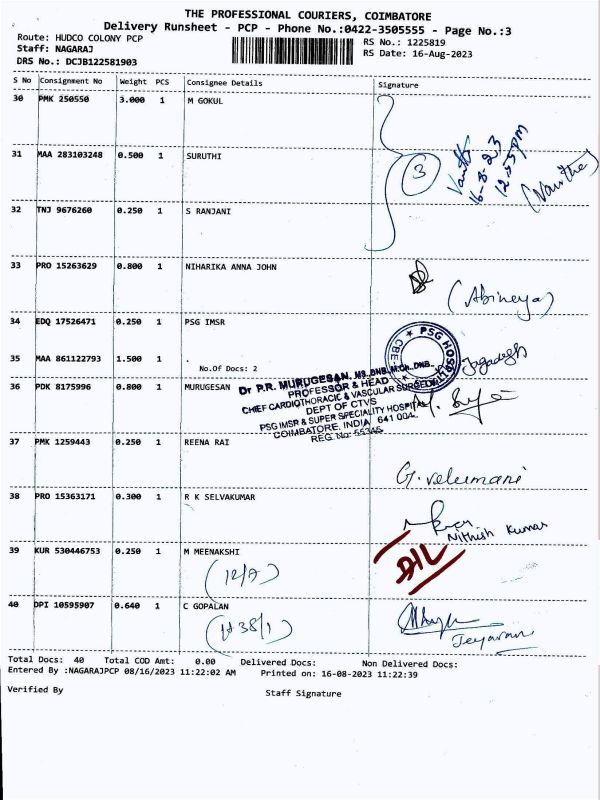 THE PROFESSIONAL COURIERS, COIMBATORE
Delivery Runsheet - PCP - Phone No.:0422-3505555 - Page No.:3
Route: HUDCO COLONY PCP
RS No.: 1225819
Staff: NAGARAJ
RS Date: 16-Aug-2023
DRS No.: DCJB122581903
S No Consignment No Weight PCS Consignee Details Signature
30 PMK 250550 3.000 1 M GOKUL
31 MAA 283103248 0.500 1 SURUTHI
3
16-8-23
12:55 PM
(Vanitha)
32 TNJ 9676260 0.250 1 S RANJANI
33 PRO 15263629 0.800 1 NIHARIKA ANNA JOHN
(Abineya)
34 EDQ 17526471 0.250 1 PSG IMSR
PSG HOSP
CBE
Jagadesh
35 MAA 861122793 1.500 1 .
No.Of Docs: 2
36 PDK 8175996 0.800 1 MURUGESAN
Dr P.R. MURUGESAN, MS.,DNB.,M.Ch.,DNB.,
PROFESSOR & HEAD
CHIEF CARDIOTHORACIC & VASCULAR SURGEON
DEPT OF CTVS
PSG IMSR & SUPER SPECIALITY HOSPITAL
COIMBATORE, INDIA 641 004.
REG. No: 55345
37 PMK 1259443 0.250 1 REENA RAI
G. velumani
38 PRO 15363171 0.300 1 R K SELVAKUMAR
Nithish Kumar
39 KUR 530446753 0.250 1 M MEENAKSHI
(12/7)
D/L
40 DPI 10595907 0.640 1 C GOPALAN
(H 38/1)
Jeyaram
Total Docs: 40 Total COD Amt: 0.00 Delivered Docs: Non Delivered Docs:
Entered By :NAGARAJPCP 08/16/2023 11:22:02 AM Printed on: 16-08-2023 11:22:39
Verified By
Staff Signature